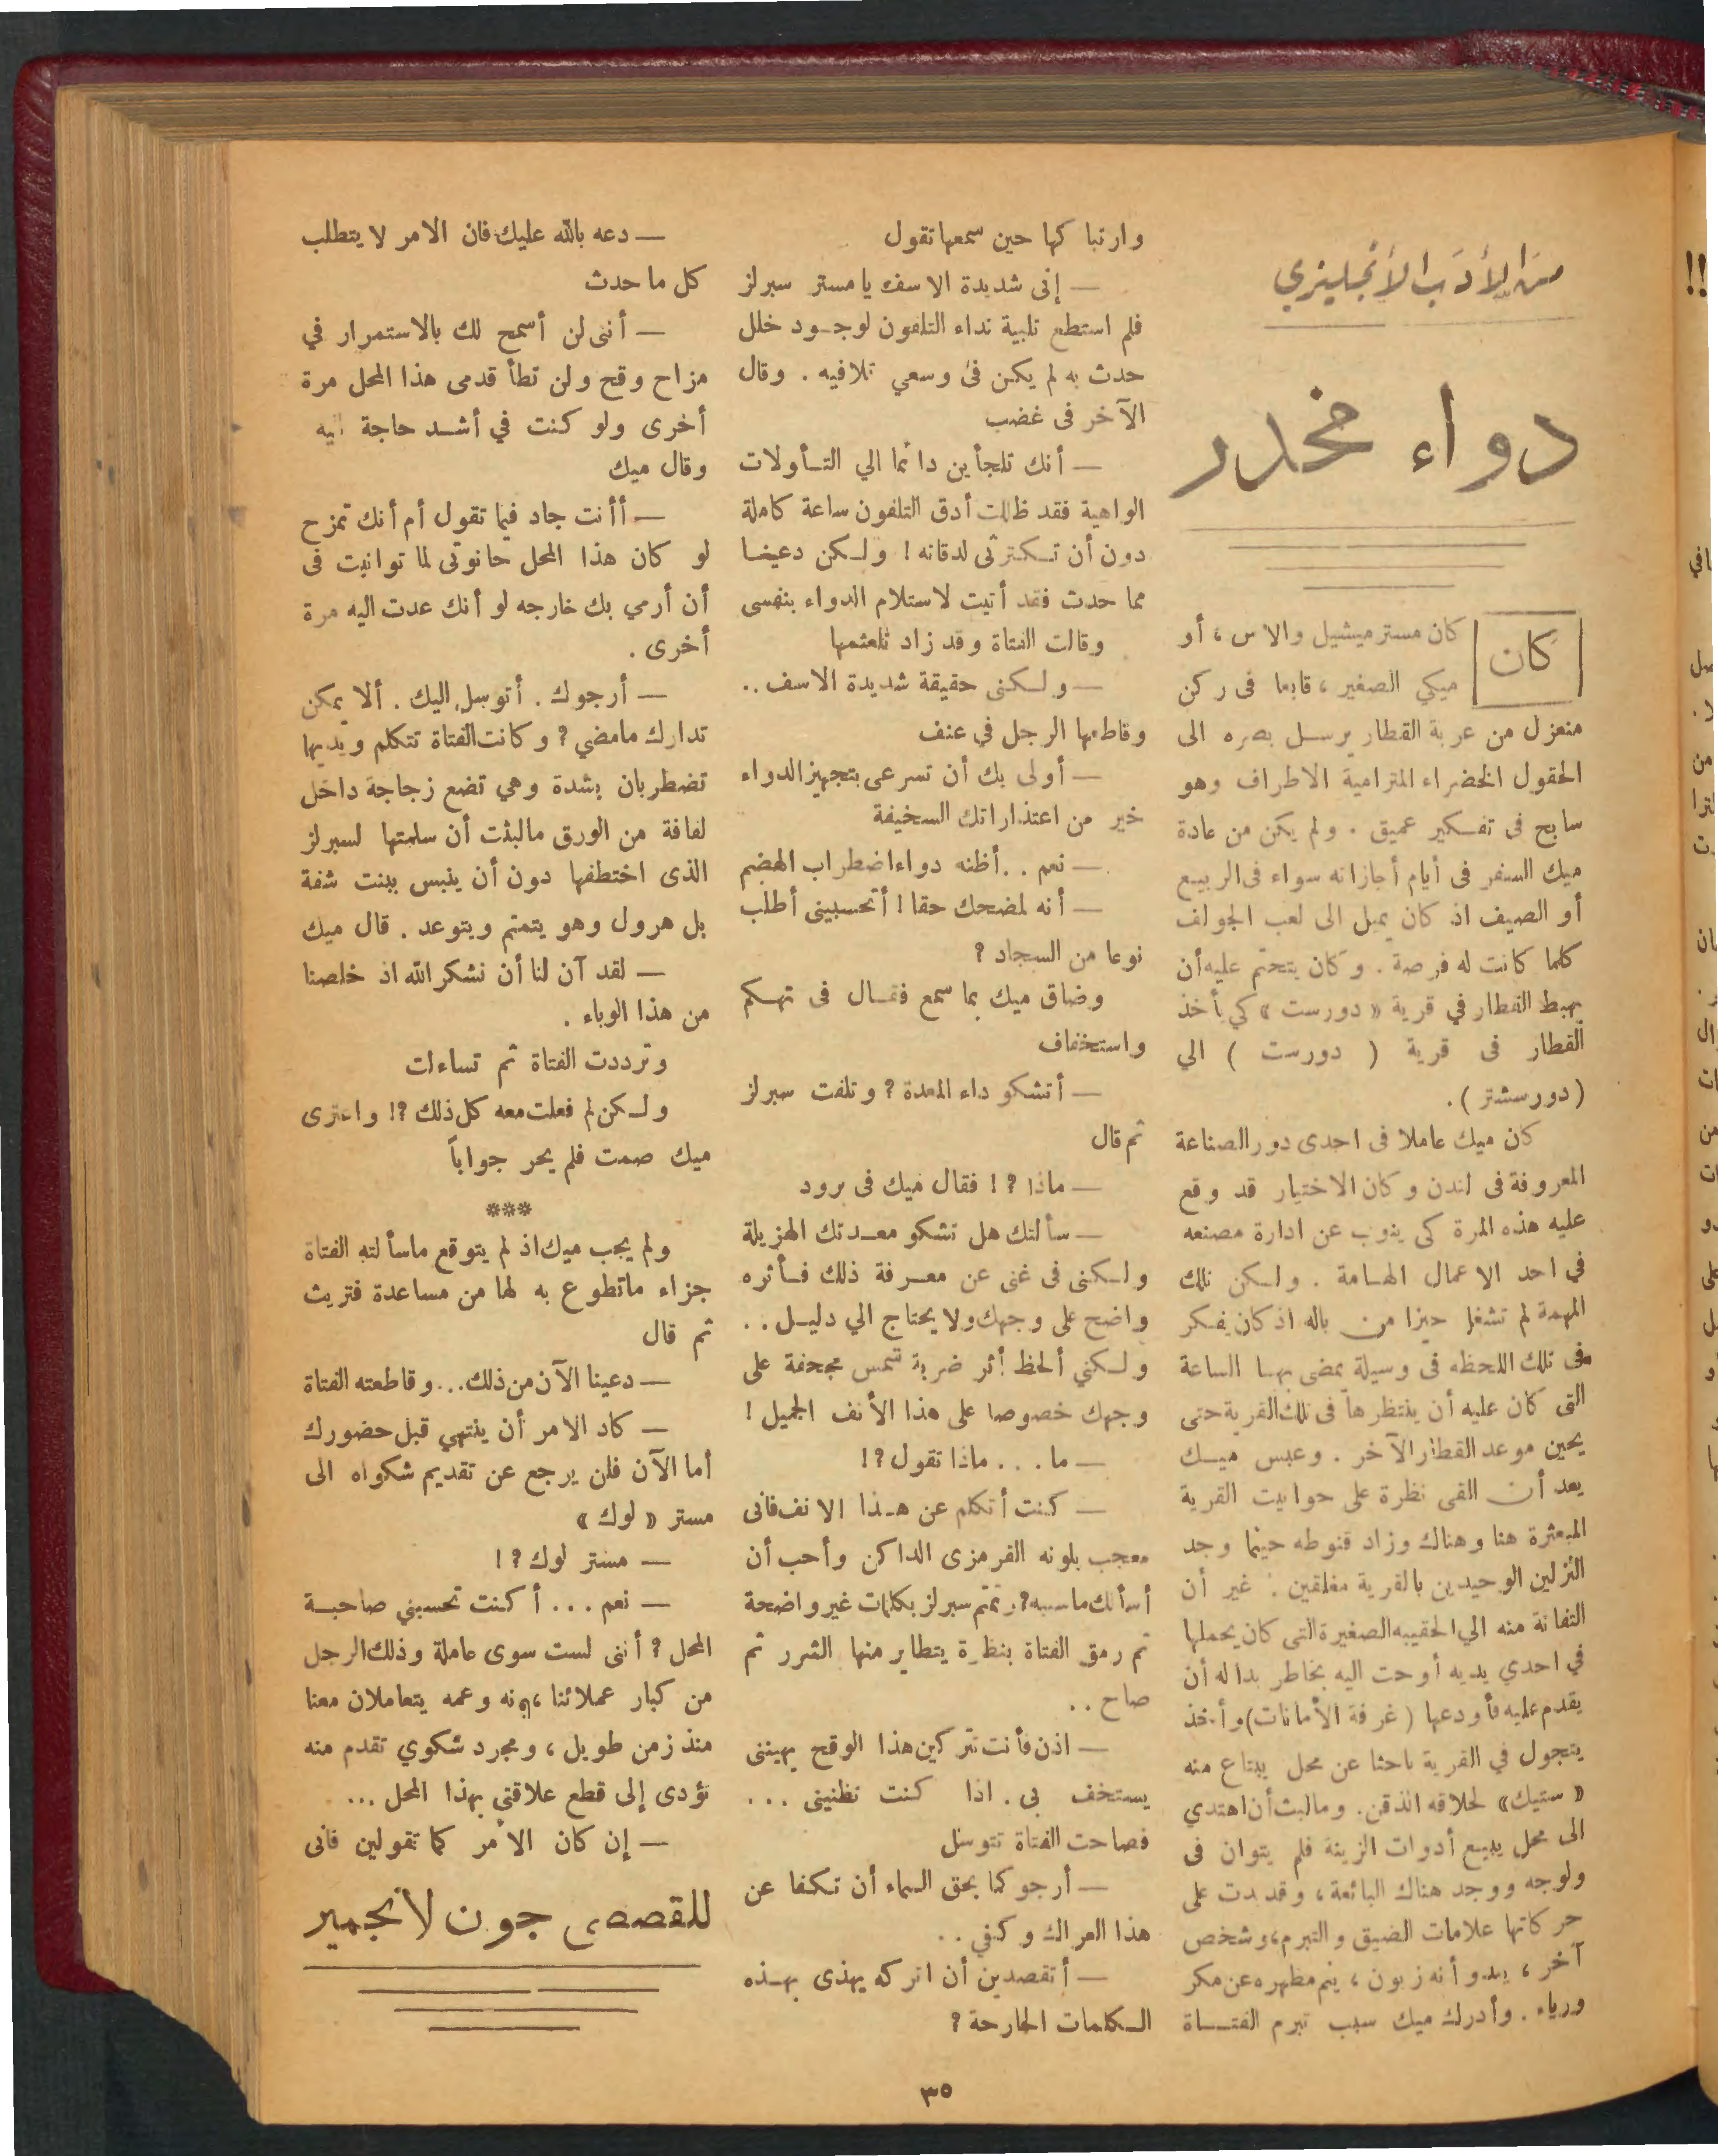 من الأدب الأنجليزي
دواء مخدر
كان
كان مستر ميشيل والاس ، أو
ميكي الصغير ، قابعا فى ركن
منعزل من عربة القطار يرسل بصره الى
الحقول الخضراء المترامية الاطراف وهو
سابح فى تفكير عميق . ولم يكن من عادة
ميك السفر فى أيام أجازاته سواء فى الربيع
أو الصيف اذ كان يميل الى لعب الجولف
كلما كانت له فرصة . وكان يتحتم عليه أن
يهبط القطار في قرية « دورست » كي يأخذ
القطار فى قرية ( دورست ) الي
( دورسشتر ) .
كان ميك عاملا فى احدى دور الصناعة
المعروفة فى لندن وكان الاختيار قد وقع
عليه هذه المرة كى ينوب عن ادارة مصنعه
في احد الاعمال الهامة . ولكن تلك
المهمة لم تشغل حيزا من باله اذ كان يفكر
فى تلك اللحظه فى وسيلة يمضى بها الساعة
التى كان عليه أن ينتظرها فى تلك القرية حتى
يحين موعد القطار الآخر . وعبس ميك
بعد أن القى نظرة على حوانيت القرية
المبعثرة هنا وهناك وزاد قنوطه حينما وجد
النزلين الوحيدين بالقرية مغلقين . غير أن
التفاتة منه الي الحقيبه الصغيرة التى كان يحملها
في احدي يديه أوحت اليه بخاطر بدا له أن
يقدم عليه فأودعها ( غرفة الأمانات ) وأخذ
يتجول في القرية باحثا عن محل يبتاع منه
« ستيك » لحلاقه الذقن . وما لبث أن اهتدي
الى محل يبيع أدوات الزينة فلم يتوان فى
ولوجه ووجد هناك البائعة ، وقد بدت على
حركاتها علامات الضيق والتبرم ، وشخص
آخر ، يبدو أنه زبون ، ينم مظهره عن مكر
ورياء . وأدرك ميك سبب تبرم الفتاة
وارتباكها حين سمعها تقول
— إنى شديدة الاسف يا مستر سبرلز
فلم استطع تلبية نداء التلفون لوجود خلل
حدث به لم يكن فى وسعي تلافيه . وقال
الآخر فى غضب
— أنك تلجأين دائما الي التأولات
الواهية فقد ظللت أدق التلفون ساعة كاملة
دون أن تكترثى لدقاته ! ولكن دعينا
مما حدث فقد أتيت لاستلام الدواء بنفسى
وقالت الفتاة وقد زاد تلعثمها
— ولكنى حقيقة شديدة الاسف ..
وقاطعها الرجل في عنف
— أولى بك أن تسرعى بتجهيز الدواء
خير من اعتذاراتك السخيفة
— نعم .. أظنه دواء اضطراب الهضم
— أنه لمضحك حقا ! أتحسبينى أطلب
نوعا من السجاد ؟
وضاق ميك بما سمع فقال فى تهكم
واستخفاف
— أتشكو داء المعدة ؟ وتلفت سبرلز
ثم قال
— ماذا ؟ ! فقال ميك فى برود
— سألتك هل تشكو معدتك الهزيلة
ولكنى فى غنى عن معرفة ذلك فأثره
واضح على وجهك ولا يحتاج الي دليل ..
ولكني ألحظ أثر ضربة شمس مجحفة على
وجهك خصوصا على هذا الأنف الجميل !
— ما ... ماذا تقول ؟ !
— كنت أتكلم عن هذا الانف فانى
معجب بلونه القرمزى الداكن وأحب أن
أسألك ما سببه ؟ وتمتم سبرلز بكلمات غير واضحة
ثم رمق الفتاة بنظرة يتطاير منها الشرر ثم
صاح ..
— اذن فأنت تتركين هذا الوقح يهيننى
يستخف بى . اذا كنت تظنينى ...
فصاحت الفتاة تتوسل
— أرجوكما بحق السماء أن تكفا عن
هذا العراك وكفي ..
— أتقصدين أن اتركه يهذى بهذه
الكلمات الجارحة ؟
— دعه بالله عليك فان الامر لا يتطلب
كل ما حدث
— أننى لن أسمح لك بالاستمرار في
مزاح وقح ولن تطأ قدمى هذا المحل مرة
أخرى ولو كنت في أشد حاجة اليه
وقال ميك
— أأنت جاد فيما تقول أم أنك تمزح
لو كان هذا المحل حانوتى لما توانيت فى
أن أرمي بك خارجه لو أنك عدت اليه مرة
أخرى .
— أرجوك . أتوسل اليك . ألا يمكن
تدارك ما مضي ؟ وكانت الفتاة تتكلم ويديها
تضطربان بشدة وهي تضع زجاجة داخل
لفافة من الورق مالبثت أن سلمتها لسبرلز
الذى اختطفها دون أن ينبس ببنت شفة
بل هرول وهو يتمتم ويتوعد . قال ميك
— لقد آن لنا أن نشكر الله اذ خلصنا
من هذا الوباء .
وترددت الفتاة ثم تساءلت
ولكن لم فعلت معه كل ذلك ؟! واعترى
ميك صمت فلم يحر جواباً
***
ولم يجب ميك اذ لم يتوقع ماسألته الفتاة
جزاء ماتطوع به لها من مساعدة فتريث
ثم قال
— دعينا الآن من ذلك ... وقاطعته الفتاة
— كاد الامر أن ينتهي قبل حضورك
أما الآن فلن يرجع عن تقديم شكواه الى
مستر « لوك »
— مستر لوك ؟ !
— نعم ... أكنت تحسبني صاحبة
المحل ؟ أننى لست سوى عاملة وذلك الرجل
من كبار عملائنا ، وعمه يتعاملان معنا
منذ زمن طويل ، ومجرد شكوي تقدم منه
تؤدى إلى قطع علاقتى بهذا المحل ...
— إن كان الأمر كما تقولين فانى
للقصصى جون لأنجمير
٣٥